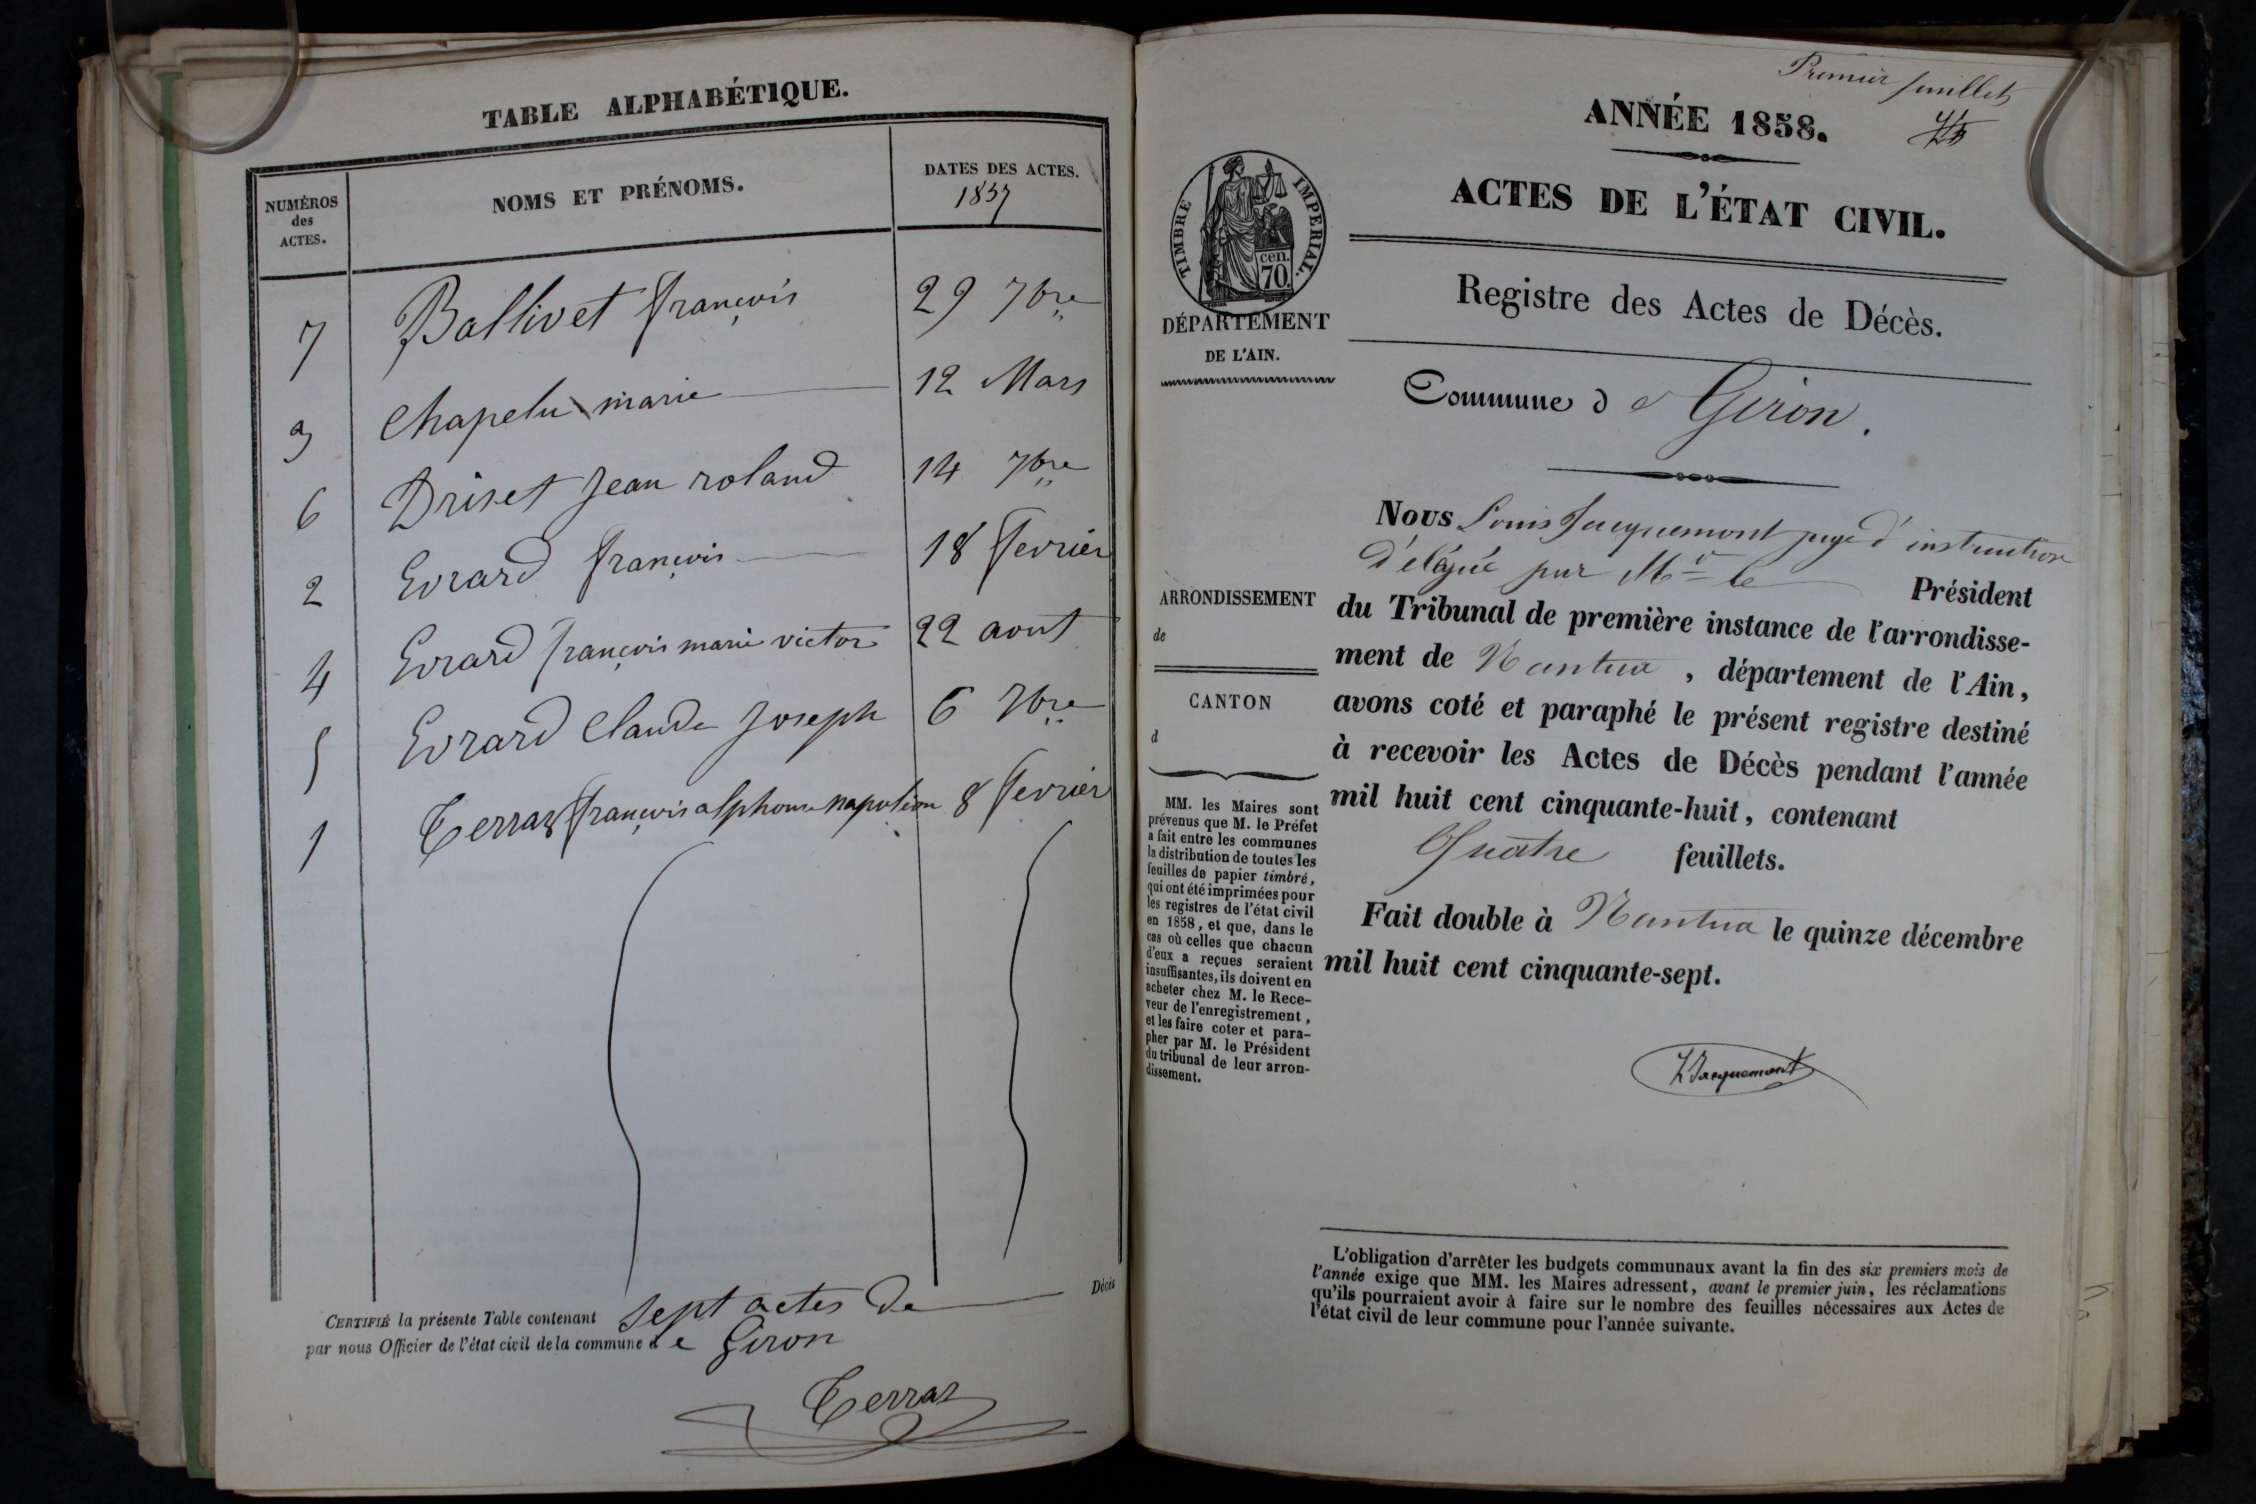 TABLE ALPHABÉTIQUE.
NUMÉROS
des
ACTES.
NOMS ET PRÉNOMS.
DATES DES ACTES.
1857
7 Ballivet françois 29 7bre
3 Chapelu marie 12 Mars
6 Driset Jean roland 14 7bre
2 Evrard françois 18 fevrier
4 Evrard françois marie victor 22 aout
5 Evrard Claude Joseph 6 7bre
1 Terraz françois alphonse napoléon 8 fevrier
Décès
CERTIFIÉ la présente Table contenant sept actes de
par nous Officier de l'état civil de la commune de Giron
Terraz
Premier feuillet
ANNÉE 1858.
ACTES DE L'ÉTAT CIVIL.
TIMBRE IMPERIAL.
cen.
70
DÉPARTEMENT
DE L'AIN.
Registre des Actes de Décès.
Commune de Giron.
Nous Louis Jacquemont juge d'instruction
délégué par Mr le Président
du Tribunal de première instance de l'arrondisse-
ment de Nantua, département de l'Ain,
avons coté et paraphé le présent registre destiné
à recevoir les Actes de Décès pendant l'année
mil huit cent cinquante-huit, contenant
Quatre feuillets.
Fait double à Nantua le quinze décembre
mil huit cent cinquante-sept.
LJacquemont
ARRONDISSEMENT
de
CANTON
d
MM. les Maires sont
prévenus que M. le Préfet
a fait entre les communes
la distribution de toutes les
feuilles de papier timbré,
qui ont été imprimées pour
les registres de l'état civil
en 1858, et que, dans le
cas où celles que chacun
d'eux a reçues seraient
insuffisantes, ils doivent en
acheter chez M. le Rece-
veur de l'enregistrement,
et les faire coter et para-
pher par M. le Président
du tribunal de leur arron-
dissement.
L'obligation d'arrêter les budgets communaux avant la fin des six premiers mois de
l'année exige que MM. les Maires adressent, avant le premier juin, les réclamations
qu'ils pourraient avoir à faire sur le nombre des feuilles nécessaires aux Actes de
l'état civil de leur commune pour l'année suivante.